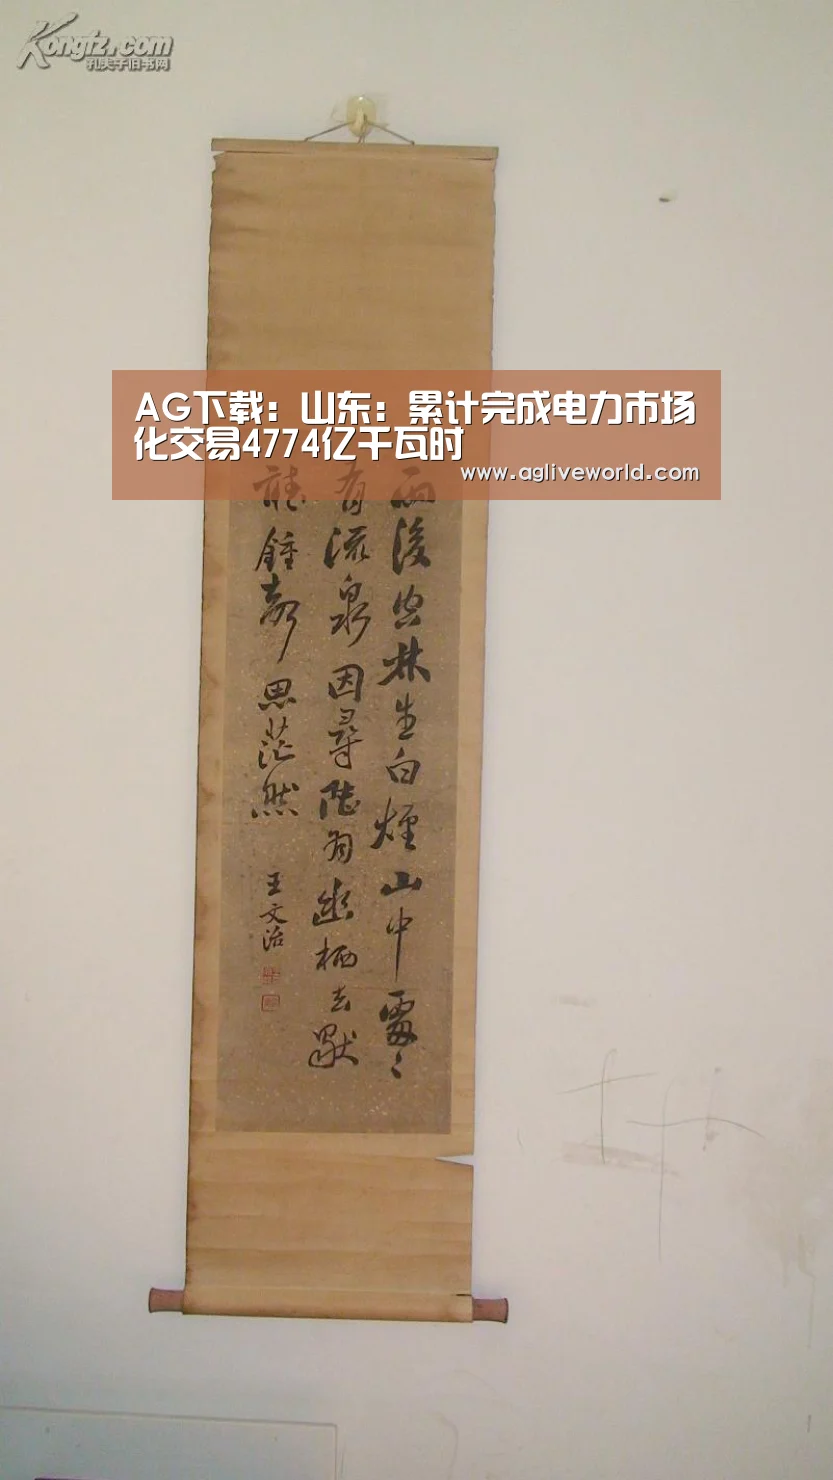 Kongfz.com
孔夫子旧书网
AG下载：山东：累计完成电力市场
化交易4774亿千瓦时
www.agliveworld.com
雨後空林生白煙山中處〻
有流泉因尋陸羽幽栖去獨
聽鍾聲思茫然
王文治